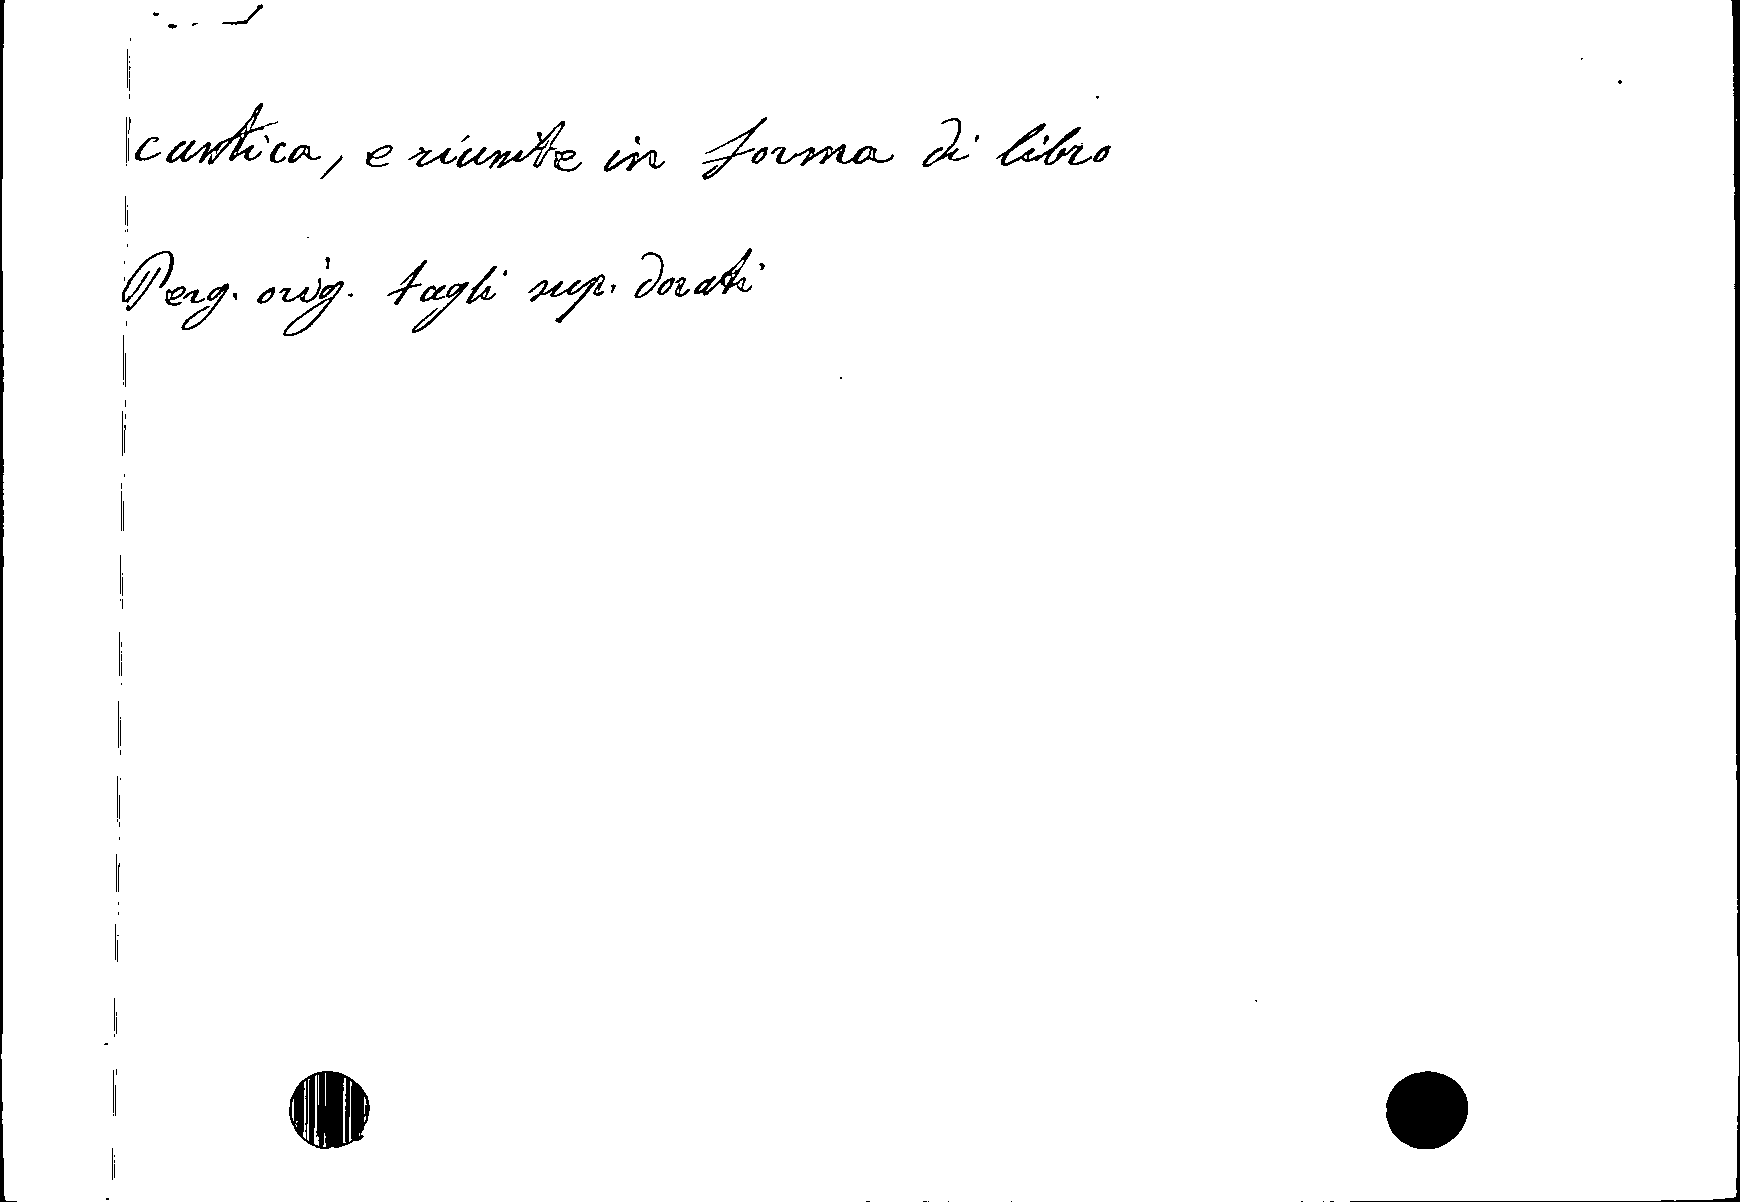 cantica, e riunite in forma di libro
Perg. orig. tagli sup. dorati